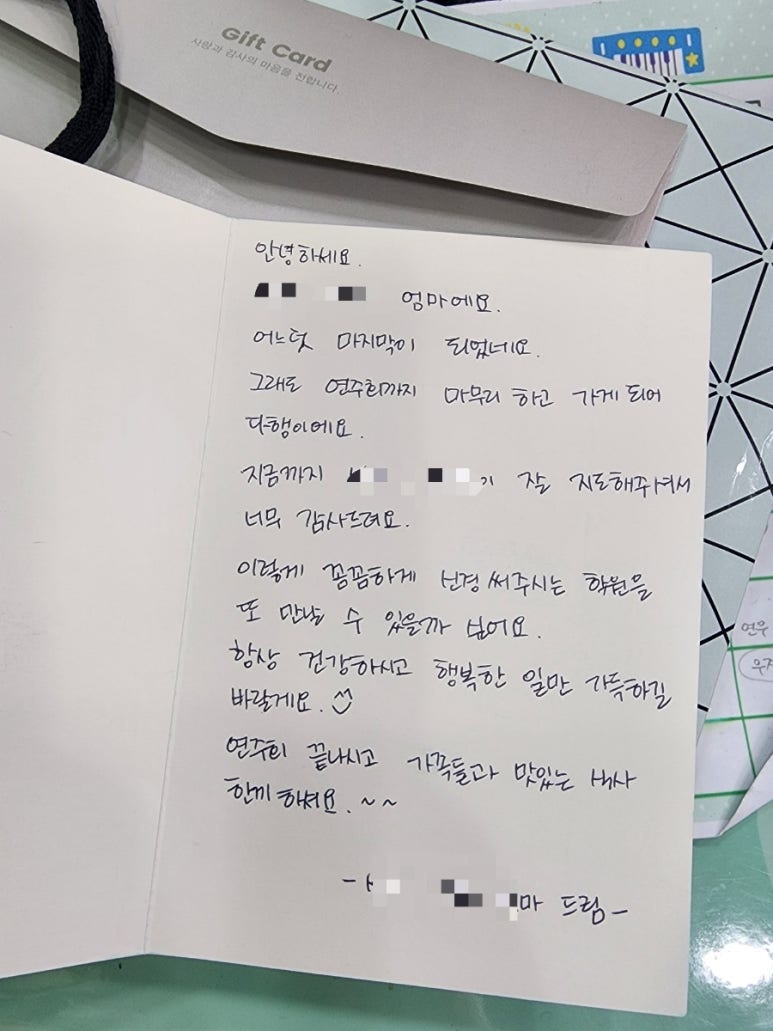 Gift Card
사랑과 감사의 마음을 전합니다.
안녕하세요.
엄마에요.
어느덧 마지막이 되었네요.
그래도 연주회까지 마무리 하고 가게 되어
다행이에요.
지금까지 기 잘 지도해주셔서
너무 감사드려요.
이렇게 꼼꼼하게 신경써주시는 학원을
또 만날 수 있을까 싶어요.
항상 건강하시고 행복한 일만 가득하길
바랄게요.
연주회 끝나시고 가족들과 맛있는 식사
한끼 하셔요.~~
- 마 드림-
연우